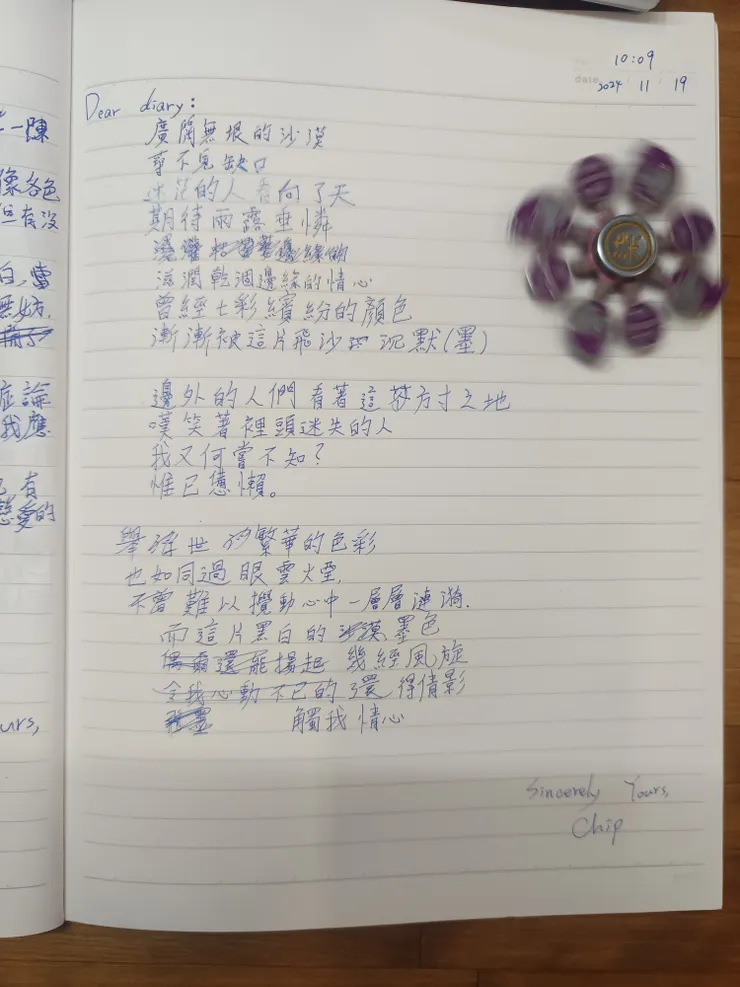 10:09
date 2024 11 19
Dear diary:
廣闊無垠的沙漠
尋不見缺口
迷茫的人看向了天
期待雨露垂憐
滋潤乾涸邊緣的情心
曾經七彩繽紛的顏色
漸漸被這片飛沙沉默(墨)
邊外的人們看著這花方寸之地
嘆笑著裡頭迷失的人
我又何嘗不知?
惟已憊懶。
舉浮世的繁華的色彩
也如同過眼雲火煙,
不曾難以攪動心中一層層漣漪.
而這片黑白的沙漠墨色
偶爾還能揚起 幾經風旋
令我心動不已的漣 得倩影
觸我情心
Sincerely Yours,
Chip
一陳
像各色
但有沒
白,當
無妨.
症論
我應
有
慈愛的
urs,